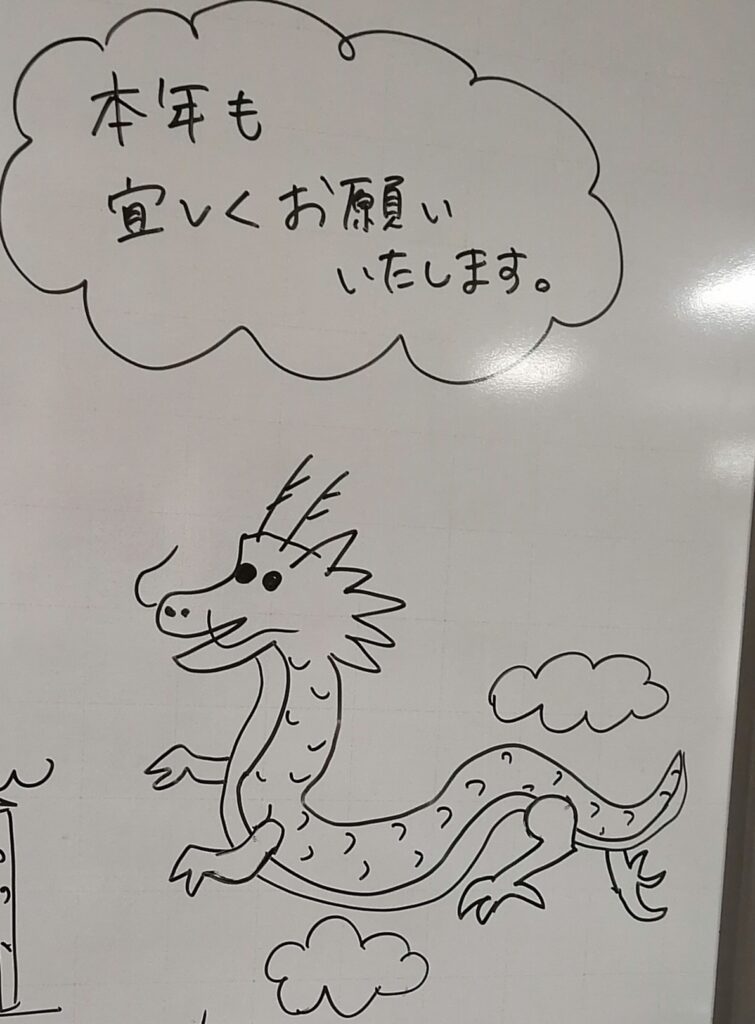 本年も
宜しくお願い
いたします。